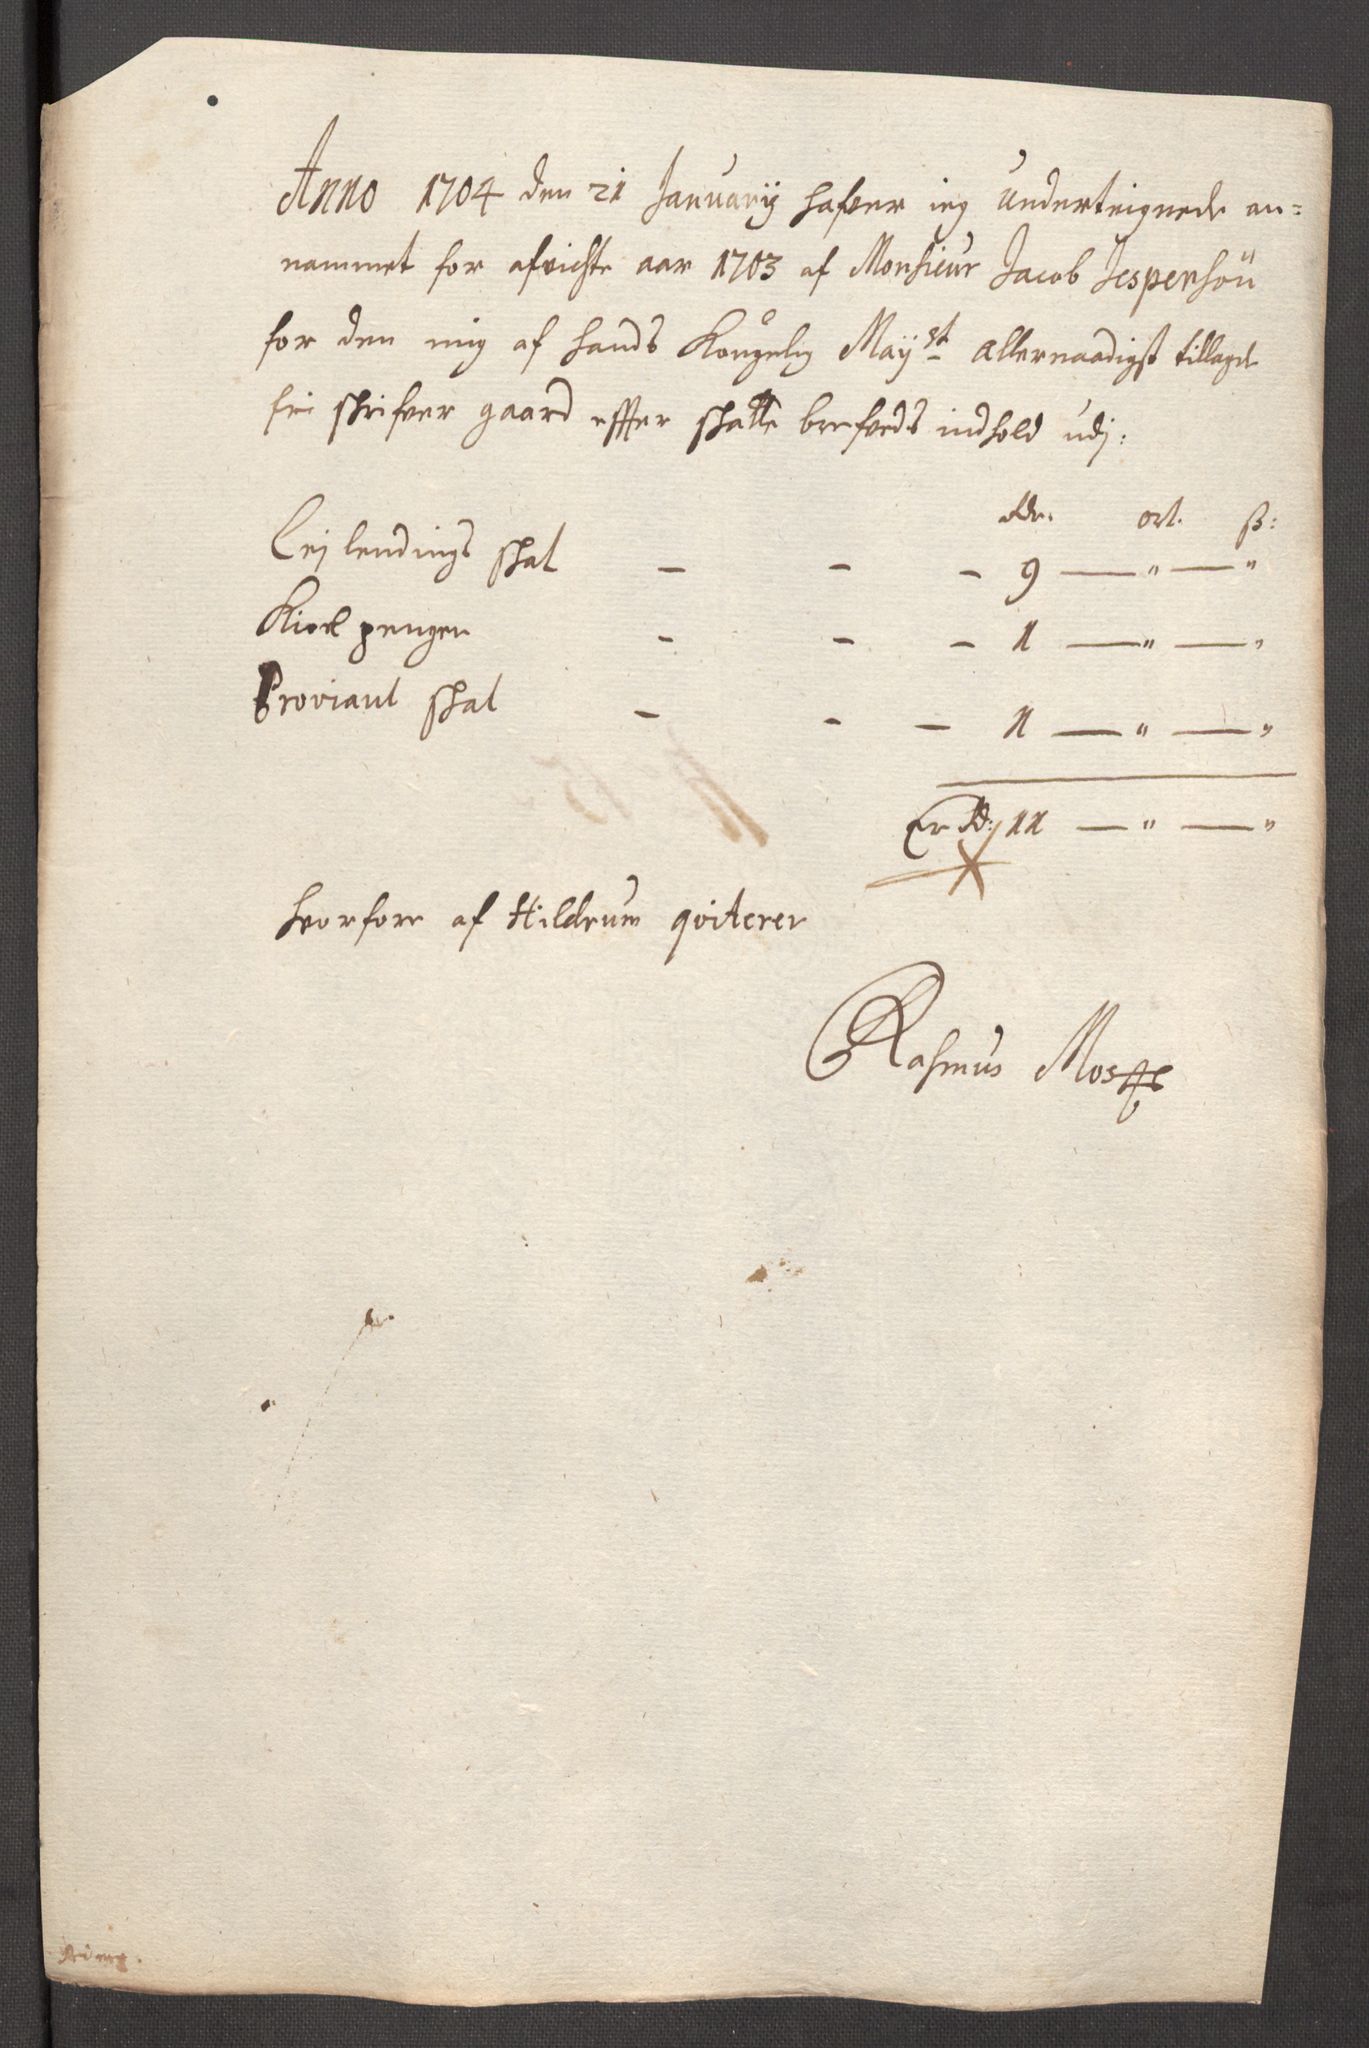 Anno 1704 den 21 Januarij hafver ieg underteignede an=
nammet for afvichte aar 1703 af Monsieur Jacob Jespersøn
for den mig af hands Kongelig Maijst allernaadigst tillagde
fri schrifver gaard effter schatte brefveds indhold udj:
Rdr. ort. ß:
Leilendings schat - - - 9 — " — "
Kiød penger - - - 1 — " — "
Proviant schat - - - 1 — " — "
Er Rd: 11 — " — "
hvorfore af Hildrum qviterer
Rasmus